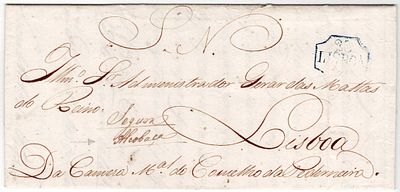 S. N.
LISBOA
Illmo. Sr. Administrador Geral das Mattas
do Reino.
Segura
Alcobaça
Lisboa
Da Camera Mal. do Concelho da Pederneira